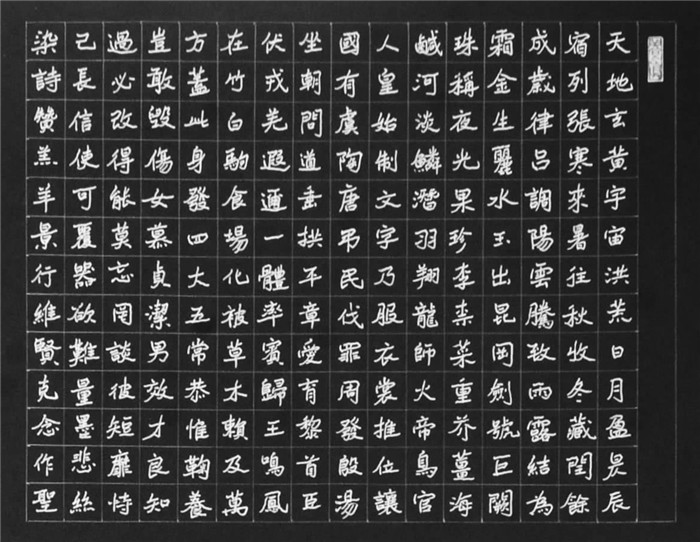 天地玄黃宇宙洪荒日月盈昃辰
宿列張寒來暑往秋收冬藏閏餘
成歲律呂調陽雲騰致雨露結為
霜金生麗水玉出昆岡劍號巨闕
珠稱夜光果珍李柰菜重芥薑海
鹹河淡鱗潛羽翔龍師火帝鳥官
人皇始制文字乃服衣裳推位讓
國有虞陶唐吊民伐罪周發殷湯
坐朝問道垂拱平章愛育黎首臣
伏戎羌遐邇一體率賓歸王鳴鳳
在竹白駒食場化被草木賴及萬
方蓋此身發四大五常恭惟鞠養
豈敢毀傷女慕貞潔男效才良知
過必改得能莫忘罔談彼短靡恃
己長信使可覆器欲難量墨悲絲
染詩贊羔羊景行維賢克念作聖